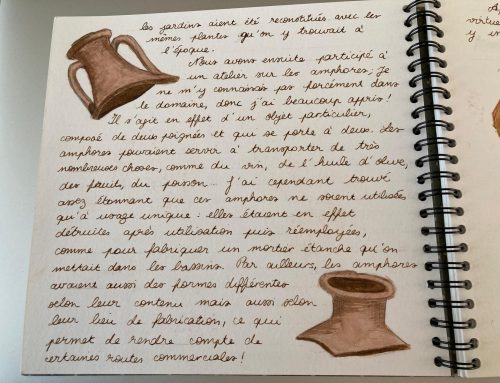 les jardins aient été reconstitués avec les
mêmes plantes qu'on y trouvait à
l'époque.
Nous avons ensuite participé à
un atelier sur les amphores; je
ne m'y connaissais pas forcément dans
le domaine, donc j'ai beaucoup appris!
Il s'agit en effet d'un objet particulier,
composé de deux poignées et qui se porte à deux. Les
amphores pouvaient servir à transporter de très
nombreuses choses, comme du vin, de l'huile d'olive,
des fruits, du poisson... J'ai cependant trouvé
assez étonnant que ces amphores ne soient utilisées
qu'à usage unique : elles étaient en effet
détruites après utilisation puis réemployées,
comme pour fabriquer un mortier étanche qu'on
mettait dans les bassins. Par ailleurs, les amphores
avaient aussi des formes différentes
selon leur contenu mais aussi selon
leur lieu de fabrication, ce qui
permet de rendre compte de
certaines routes commerciales!
virtue
y in